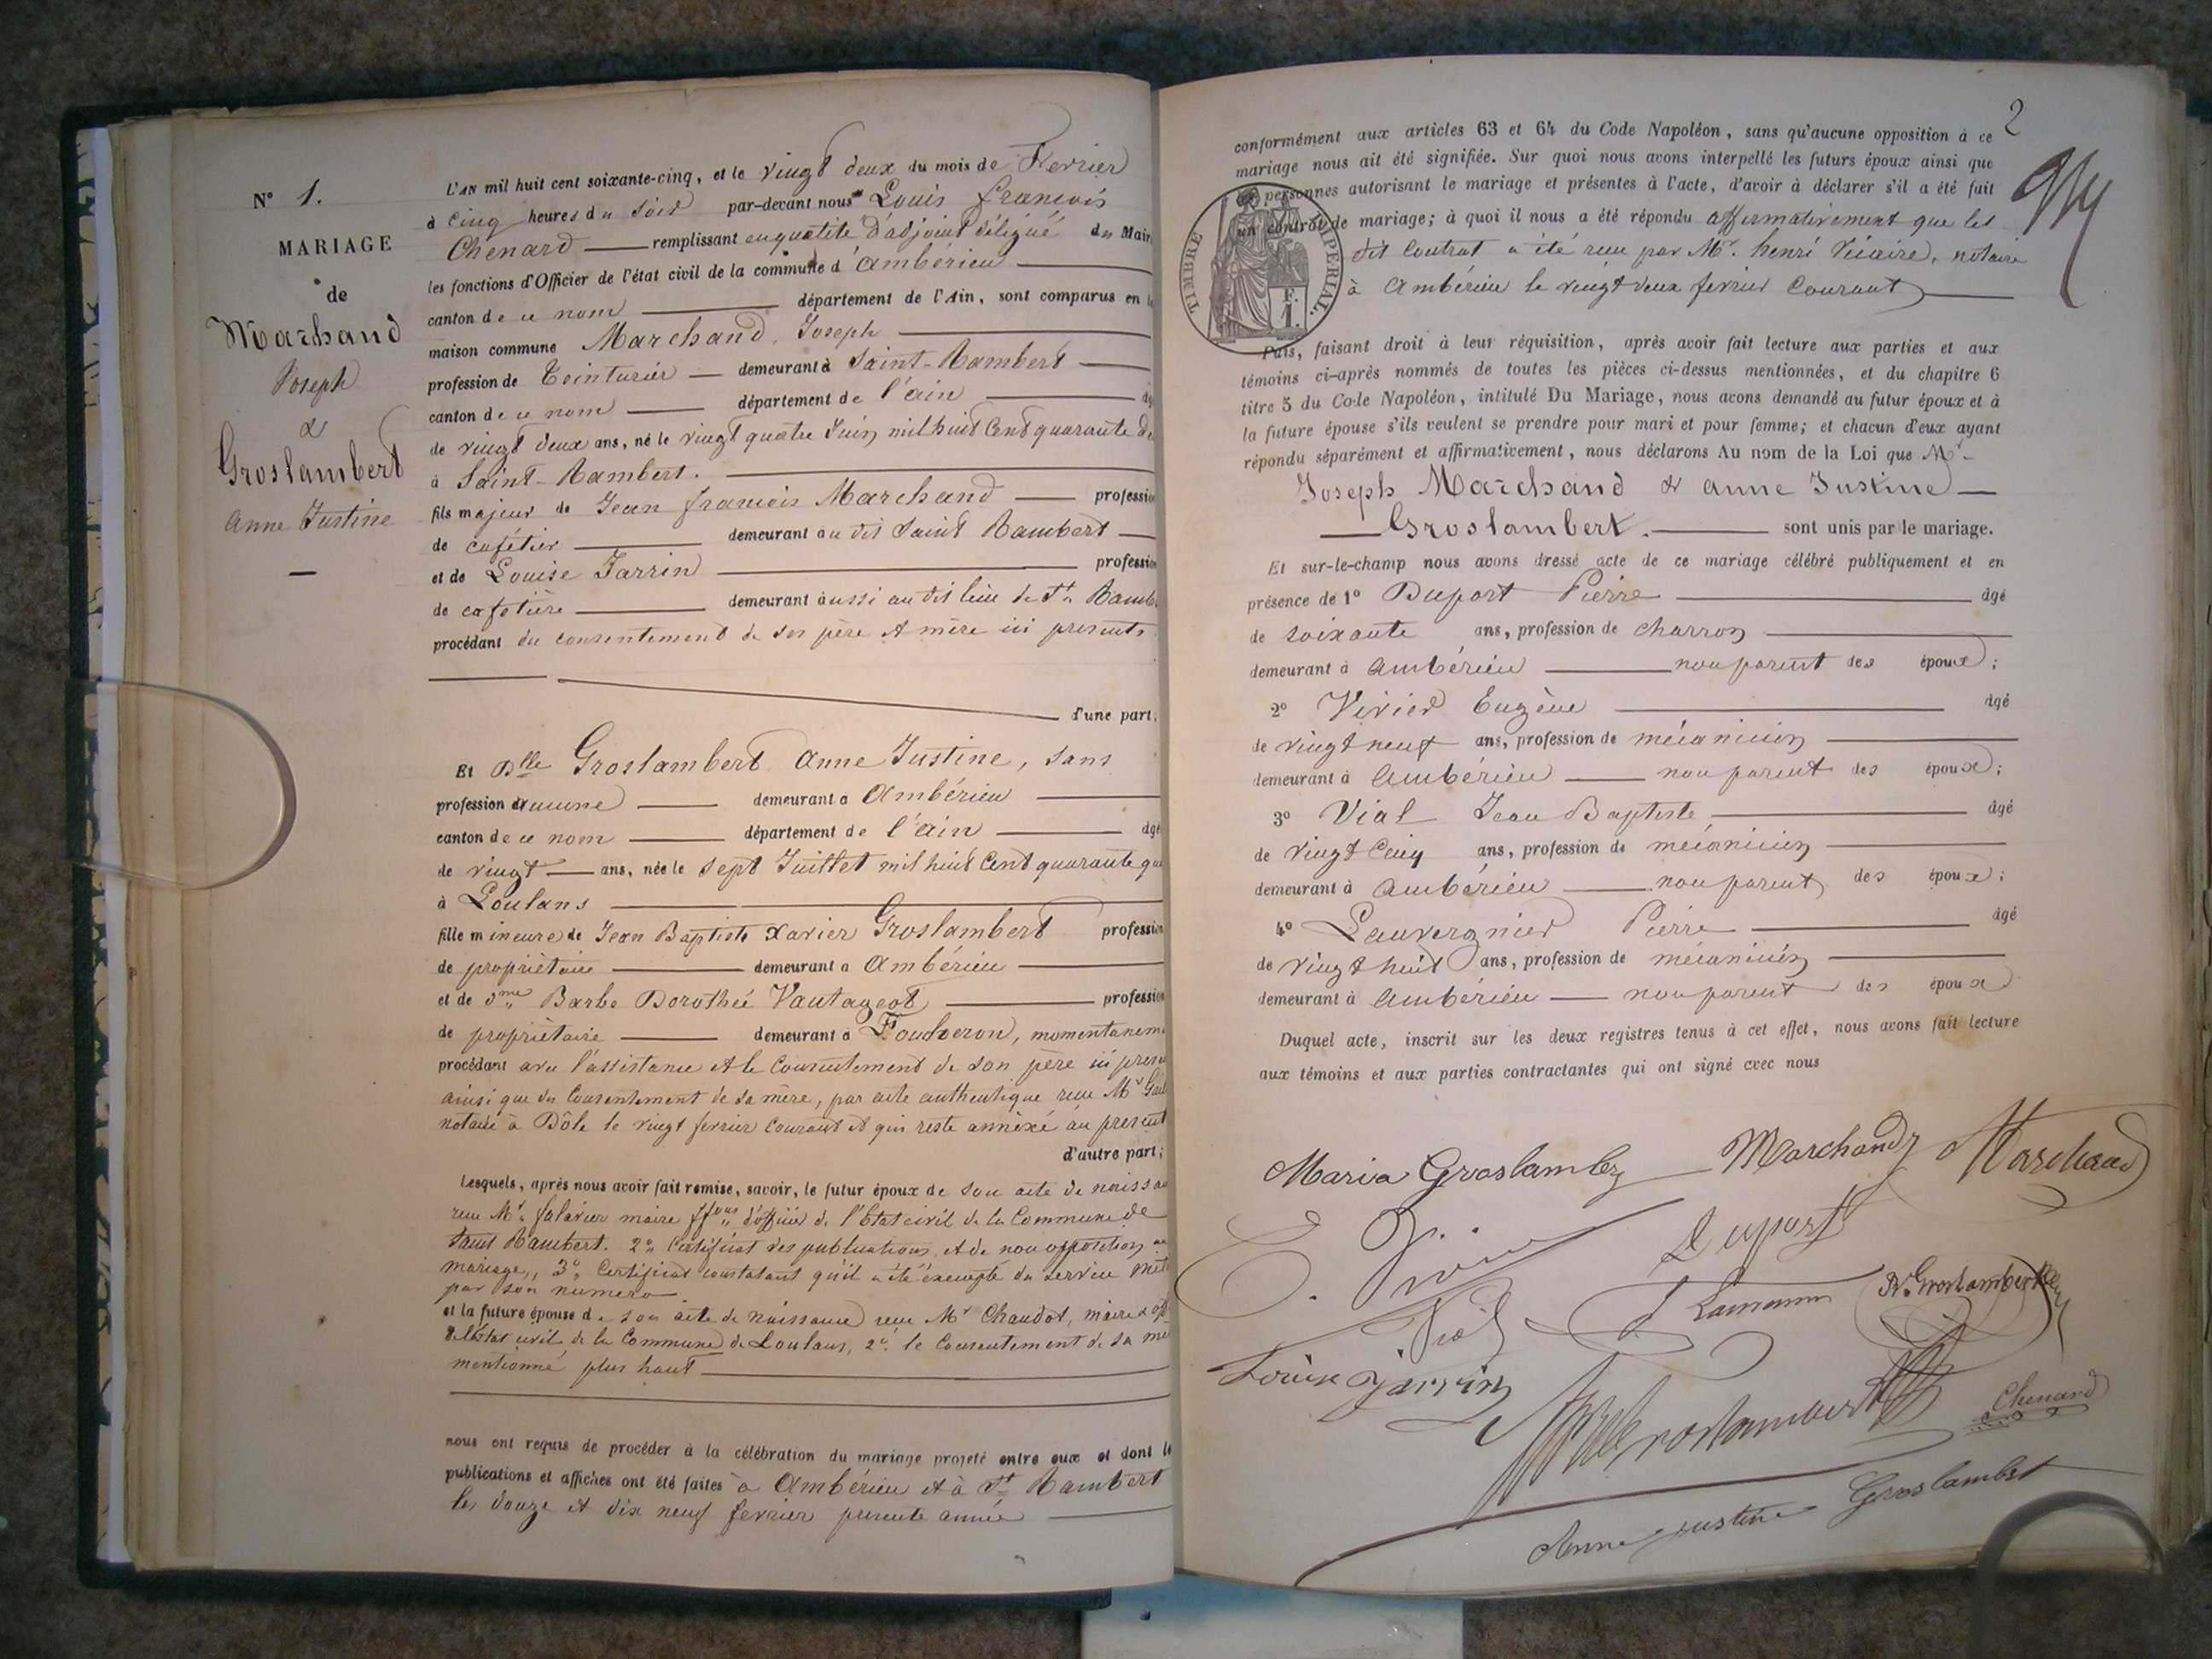 N° 1.
MARIAGE
de
Marchand
Joseph
&
Groslambert
Anne Justine
L'AN mil huit cent soixante-cinq, et le vingt deux du mois de Fevrier
à cinq heures du soir par-devant nous Louis francois
Chenard remplissant en qualité d'adjoint délégué du Mair
les fonctions d'Officier de l'état civil de la commune d'Ambérieu
canton de ce nom département de l'Ain, sont comparus en l
maison commune Marchand, Joseph
profession de Teinturier demeurant à Saint-Rambert
canton de ce nom département de l'ain âg
de vingt deux ans, né le vingt quatre Juin mil huit Cent quarante de
à Saint-Rambert.
fils majeur de Jean francois Marchand professio
de cafétier demeurant au dit Saint Rambert
et de Louise Jarrin profession
de cafetière demeurant aussi au dit lieu de St Rambe
procédant du consentement de ses père et mère ici presents
d'une part;
Et Dlle Groslambert Anne Justine, sans
profession aucune demeurant à Ambérieu
canton de ce nom département de l'ain âgé
de vingt ans, née le sept Juillet mil huit Cent quarante qua
à Loulans
fille mineure de Jean Baptiste Xavier Groslambert profession
de propriétaire demeurant à Ambérieu
et de dme Barbe Dorothée Vautageot profession
de propriétaire demeurant à Foucheron, momentanem
procédant avec l'assistance et le Consentement de son père ici prese
ainsi que du Consentement de sa mère, par acte authentique reçu Mr
notaire à Dôle le vingt fevrier Courant et qui reste annéxé au present
d'autre part;
Lesquels, après nous avoir fait remise, savoir, le futur époux de son acte de naissan
reçu Mr falavier maire ffons d'officier de l'Etat civil de la Commune de
Saint Rambert. 2° Certificat des publications et de non opposition au
mariage, 3° Certificat constatant qu'il a été éxempté du service milit
par son numero
et la future épouse de son acte de naissance reçu Mr Chaudot, maire & off
de l'état civil de la Commune de Loulans, 2° le Consentement de sa me
mentionné plus haut
nous ont requis de procéder à la célébration du mariage projeté entre eux et dont le
publications et affiches ont été faites à Ambérieu et à St Rambert
les douze et dix neuf fevrier presente année
2
conformément aux articles 63 et 64 du Code Napoléon, sans qu'aucune opposition à ce
mariage nous ait été signifiée. Sur quoi nous avons interpellé les futurs époux ainsi que
personnes autorisant le mariage et présentes à l'acte, d'avoir à déclarer s'il a été fait
un contrat de mariage; à quoi il nous a été répondu affirmativement que le
dit Contrat a été reçu par Mr. henri Vicaire, notaire
à Ambérieu le vingt deux fevrier Courant
TIMBRE IMPERIAL.
F.
1.
Puis, faisant droit à leur réquisition, après avoir fait lecture aux parties et aux
témoins ci-après nommés de toutes les pièces ci-dessus mentionnées, et du chapitre 6
titre 5 du Code Napoléon, intitulé Du Mariage, nous avons demandé au futur époux et à
la future épouse s'ils veulent se prendre pour mari et pour femme; et chacun d'eux ayant
répondu séparément et affirmativement, nous déclarons Au nom de la Loi que Mr
Joseph Marchand & Anne Justine
Groslambert. sont unis par le mariage.
Et sur-le-champ nous avons dressé acte de ce mariage célébré publiquement et en
présence de 1° Duport Pierre âgé
de soixante ans, profession de charron
demeurant à Ambérieu non parent des époux;
2° Vivier Eugène âgé
de vingt neuf ans, profession de mécanicien
demeurant à Ambérieu non parent des époux;
3° Vial Jean Baptiste âgé
de vingt Cinq ans, profession de mécanicien
demeurant à Ambérieu non parent des époux;
4° Lauvergnier Pierre âgé
de vingt huit ans, profession de mécanicien
demeurant à Ambérieu non parent des époux
Duquel acte, inscrit sur les deux registres tenus à cet effet, nous avons fait lecture
aux témoins et aux parties contractantes qui ont signé avec nous
Maria Groslambert Marchand Marchand
Duport
Vial
Louise Jarrin
Groslambert
Chenard
Anne justine Groslambert